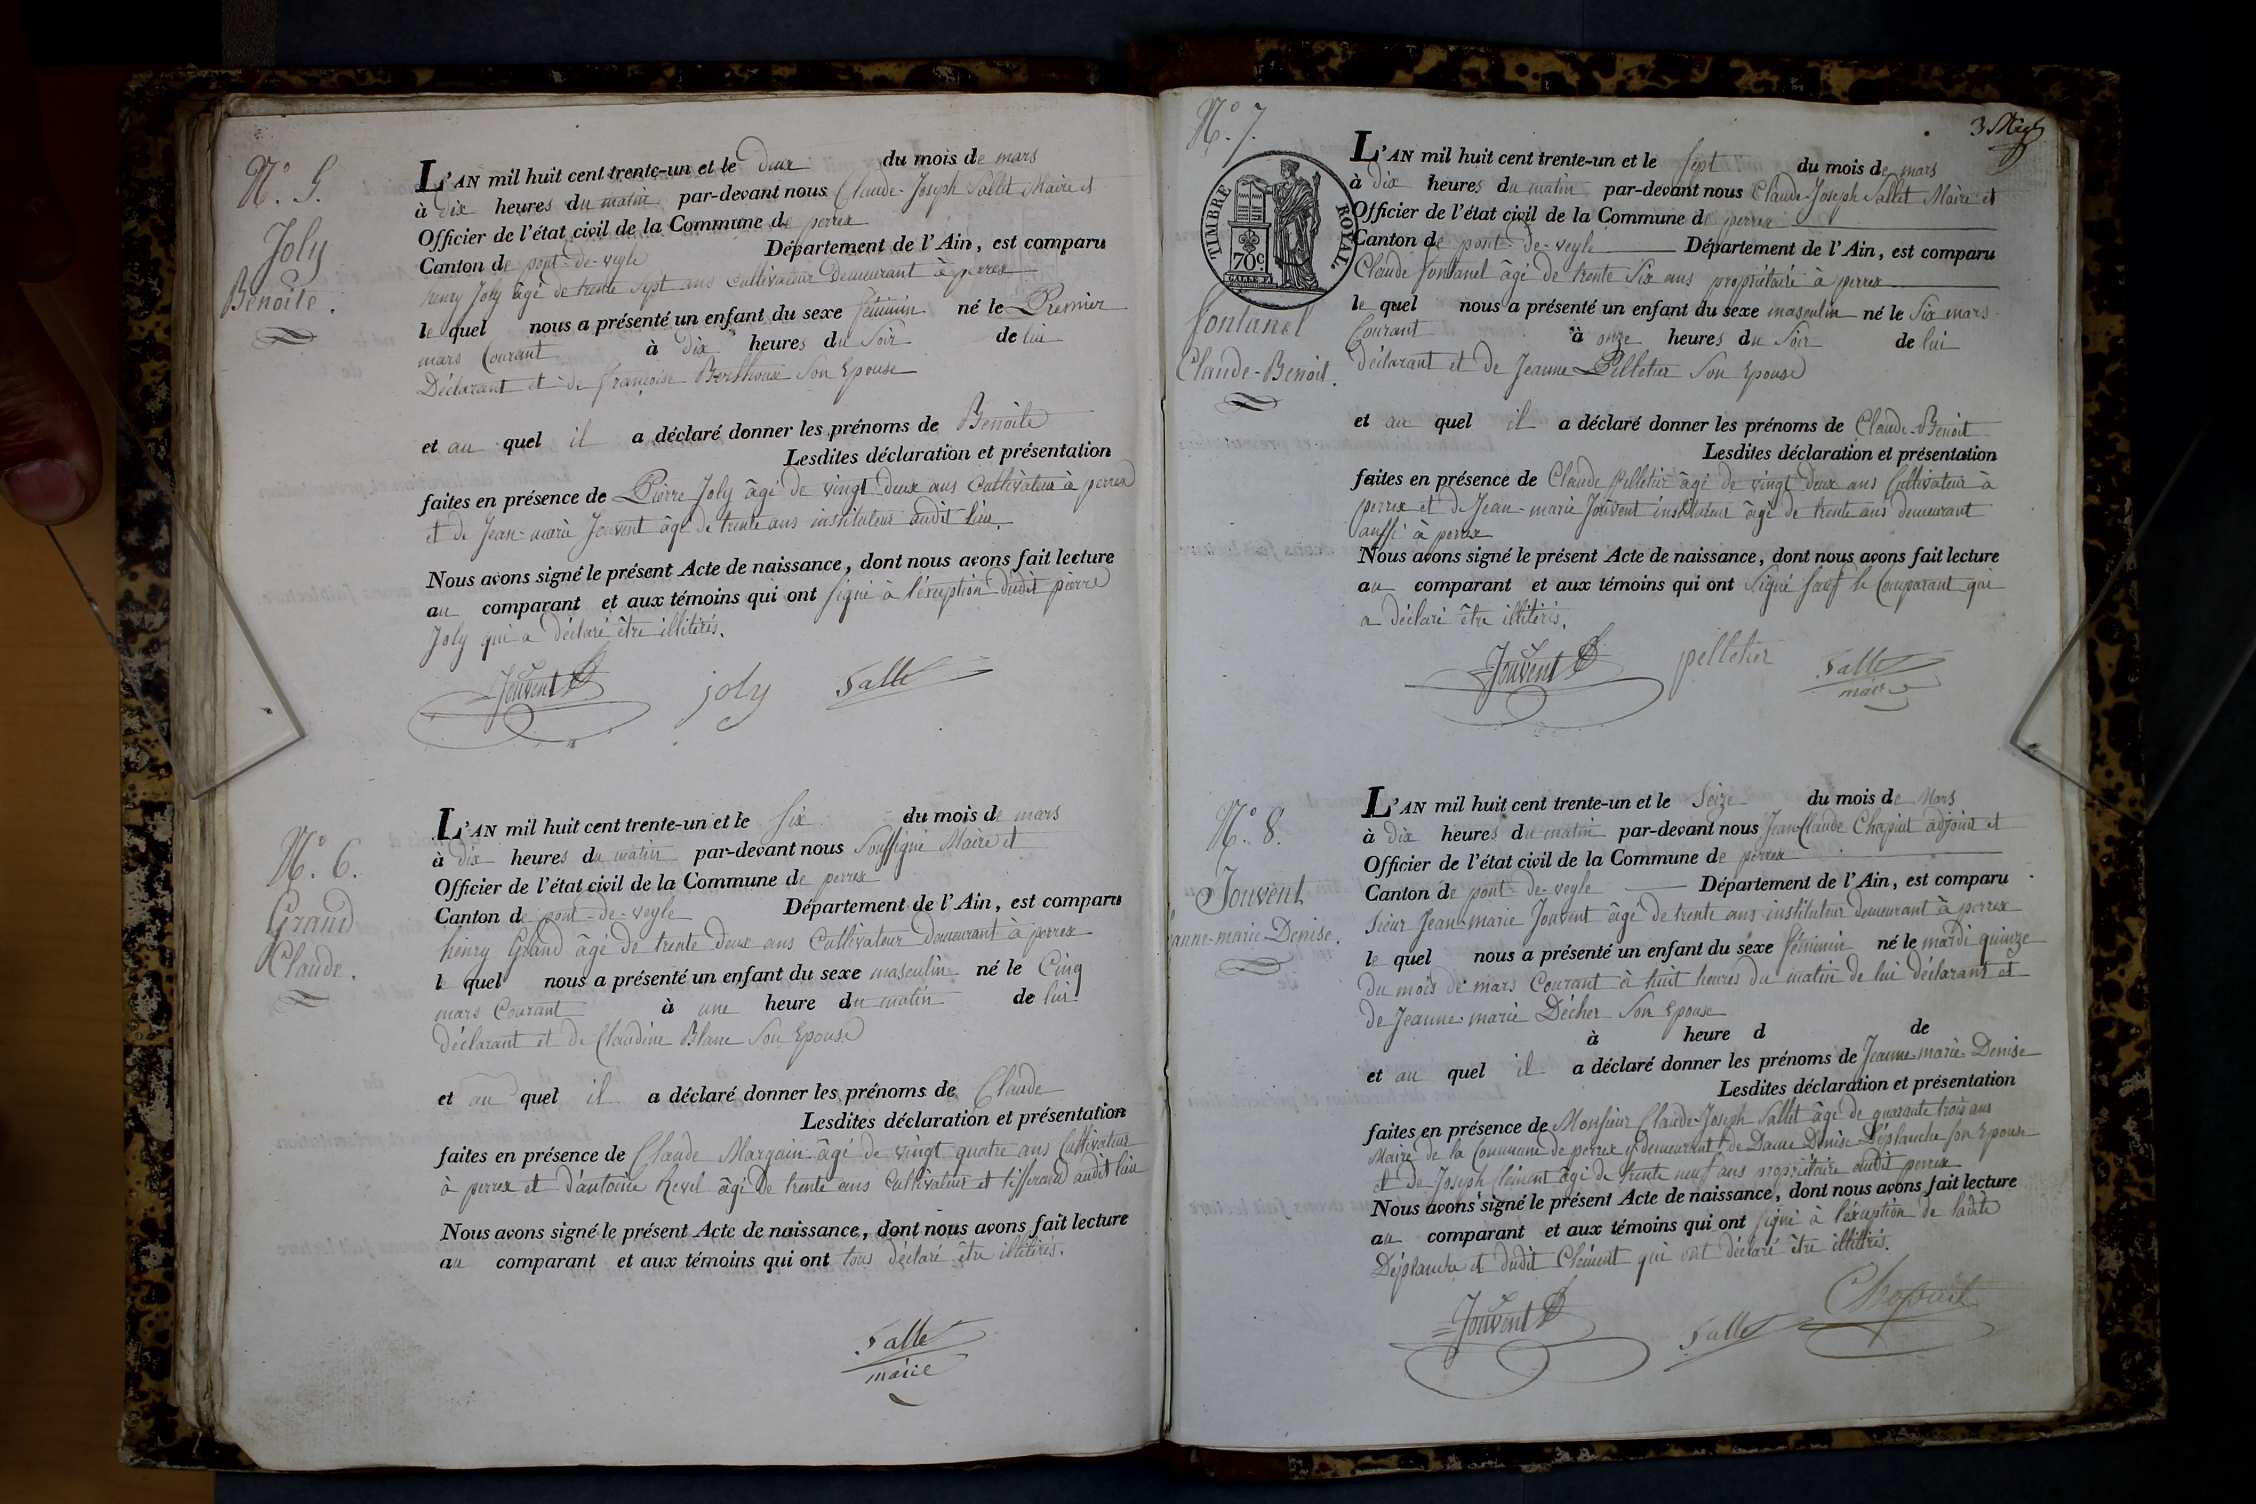 N.º 5.
Joly
Benoite.
L'AN mil huit cent trente-un et le deux du mois de mars
à dix heures du matin par-devant nous Claude-Joseph Sallet Maire et
Officier de l'état civil de la Commune de perrex
Canton de pont-de-veyle Département de l'Ain, est comparu
henry Joly âgé de trente sept ans cultivateur demeurant à perrex
le quel nous a présenté un enfant du sexe féminin né le Premier
mars Courant à dix heures du Soir de lui
Déclarant et de françoise Son Epouse
et au quel il a déclaré donner les prénoms de Benoite
Lesdites déclaration et présentation
faites en présence de Pierre Joly âgé de vingt deux ans Cultivateur à perrex
et de Jean-marie Jouvent âgé de trente ans instituteur audit lieu.
Nous avons signé le présent Acte de naissance, dont nous avons fait lecture
au comparant et aux témoins qui ont signé à l'éxeption dudit pierre
Joly qui a déclaré être illitérés.
Jouvent joly Sallet
N.º 6.
Grand
Claude.
L'AN mil huit cent trente-un et le six du mois de mars
à dix heures du matin par-devant nous Soussigné Maire et
Officier de l'état civil de la Commune de perrex
Canton de pont-de-veyle Département de l'Ain, est comparu
henry Grand âgé de trente deux ans Cultivateur demeurant à perrex
le quel nous a présenté un enfant du sexe masculin né le Cinq
mars Courant à une heure du matin de lui
déclarant et de Claudine Blanc Son Epouse
et au quel il a déclaré donner les prénoms de Claude
Lesdites déclaration et présentation
faites en présence de Claude Margain âgé de vingt quatre ans Cultivateur
à perrex et d'antoine Revel âgé de trente ans Cultivateur et tisserand audit lieu
Nous avons signé le présent Acte de naissance, dont nous avons fait lecture
au comparant et aux témoins qui ont tous déclaré être illitérés.
Sallet
maire
3
N.º 7.
TIMBRE ROYAL
70 c.
fontanel
Claude-Benoit.
L'AN mil huit cent trente-un et le sept du mois de mars
à dix heures du matin par-devant nous Claude-Joseph Sallet Maire et
Officier de l'état civil de la Commune de perrex
Canton de pont-de-veyle Département de l'Ain, est comparu
Claude fontanel âgé de trente six ans propriétaire à perrex
le quel nous a présenté un enfant du sexe masculin né le Six mars
Courant à onze heures du Soir de lui
déclarant et de Jeanne Pelletier Son Epouse
et au quel il a déclaré donner les prénoms de Claude-Benoit
Lesdites déclaration et présentation
faites en présence de Claude Pelletier âgé de vingt deux ans Cultivateur à
perrex et de Jean-marie Jouvent instituteur âgé de trente ans demeurant
aussi à perrex
Nous avons signé le présent Acte de naissance, dont nous avons fait lecture
au comparant et aux témoins qui ont Signé sauf le Comparant qui
a déclaré être illitérés.
Jouvent pelletier Sallet
maire
N.º 8.
Jouvent
anne-marie-Denise.
L'AN mil huit cent trente-un et le Seize du mois de Mars
à dix heures du matin par-devant nous Jean Claude Chapuit adjoint et
Officier de l'état civil de la Commune de perrex
Canton de pont-de-veyle Département de l'Ain, est comparu
Sieur Jean-marie Jouvent âgé de trente ans instituteur demeurant à perrex
le quel nous a présenté un enfant du sexe féminin né le mardi quinze
du mois de mars Courant à huit heures du matin de lui déclarant et
de Jeanne-marie Décher Son Epouse
à heure d de
et au quel il a déclaré donner les prénoms de Jeanne-marie-Denise
Lesdites déclaration et présentation
faites en présence de Monsieur Claude-Joseph Sallet âgé de quarante trois ans
Maire de la Commune de perrex y demeurant de Dame Denise Déplanche son Epouse
et de Joseph Clément âgé de trente neuf ans propriétaire audit perrex
Nous avons signé le présent Acte de naissance, dont nous avons fait lecture
au comparant et aux témoins qui ont signé à l'éxeption de ladite
Déplanche et dudit Clément qui ont déclaré être illitérés.
Jouvent Sallet Chapuit